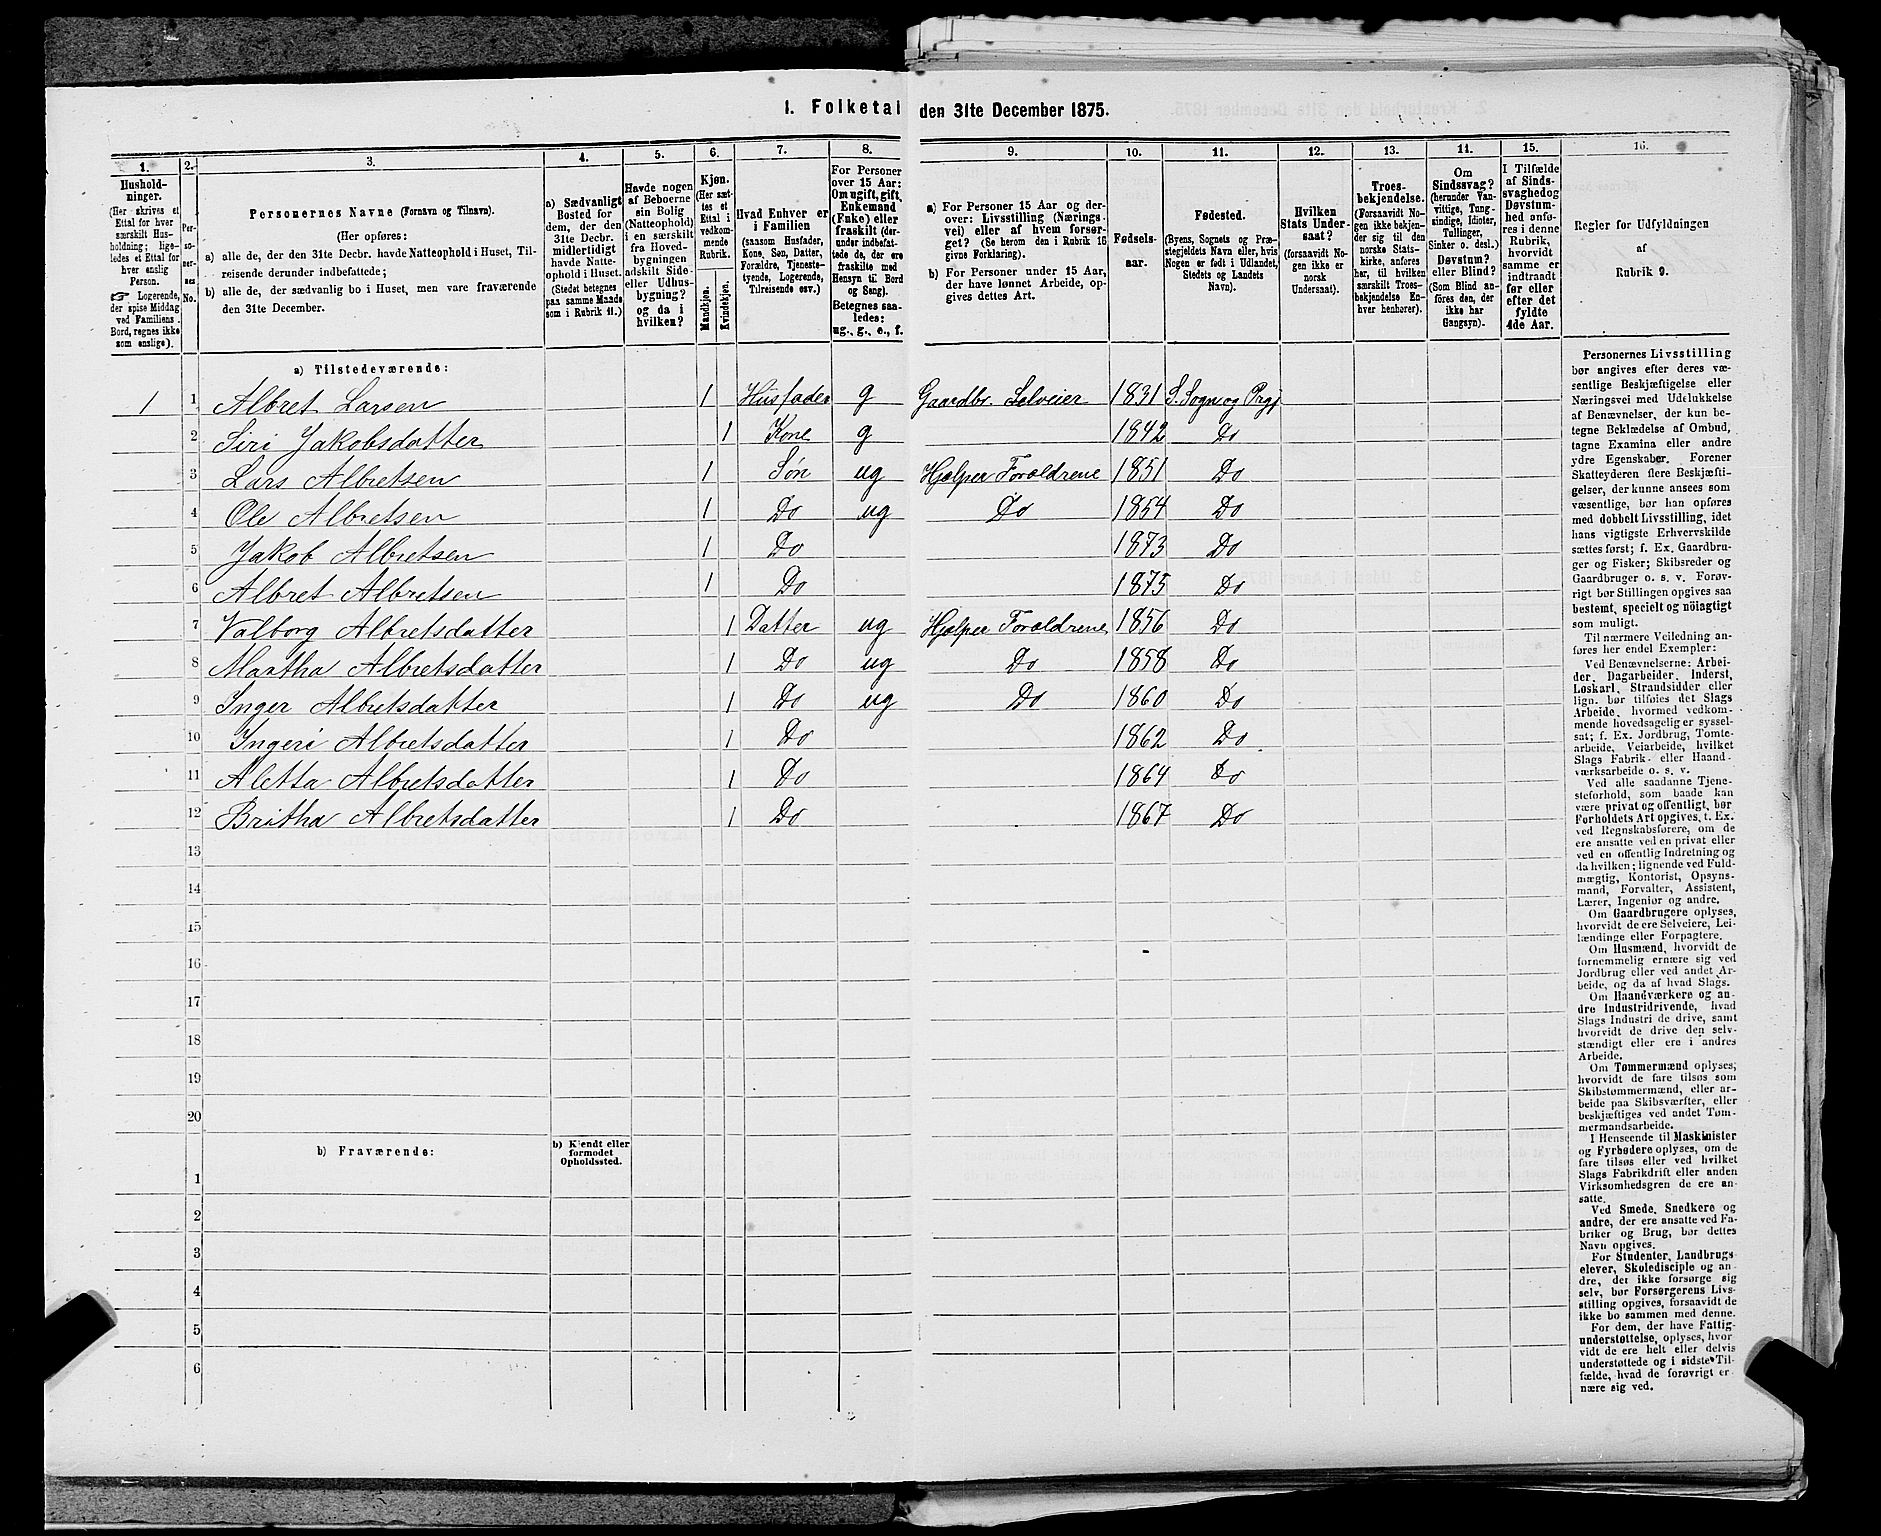 1. Folketal den 31te December 1875.
1. 2. 3. 4. 5. 6. 7. 8. 9. 10. 11. 12. 13. 14. 15. 16.
Hushold-
ninger.
(Her skrives et
Ettal for hver
særskilt Hus-
holdning; lige-
ledes et Ettal for
hver enslig
Person.
☞ Logerende,
der spise Middag
ved Familiens
Bord, regnes ikke
som enslige).
Per-
so-
ner-
nes
No.
Personernes Navne (Fornavn og Tilnavn).
(Her opføres:
a) alle de, der den 31te Decbr. havde Natteophold i Huset, Til-
reisende derunder indbefattede;
b) alle de, der sædvanlig bo i Huset, men vare fraværende
den 31te December.
a) Sædvanligt
Bosted for
dem, der den
31te Decbr.
midlertidigt
havde Natte-
ophold i Huset.
(Stedet betegnes
paa samme Maade
som i Rubrik 11.)
Havde nogen
af Beboerne
sin Bolig
(Natteophold)
i en særskilt
fra Hoved-
bygningen
adskilt Side-
eller Udhus-
bygning?
og da i
hvilken?
Kjøn.
(Her sæt-
tes et
Ettal i
vedkom-
mende
Rubrik.
Mandkjøn.
Kvindekjøn.
Hvad Enhver er
i Familien
(saasom Husfader,
Kone, Søn, Datter,
Forældre, Tjeneste-
tyende, Logerende,
Tilreisende osv.)
For Personer
over 15 Aar:
Om ugift, gift,
Enkemand
(Enke) eller
fraskilt (der-
under indbefat-
tede de, der ere
fraskilte med
Hensyn til Bord
og Seng).
Betegnes saa-
ledes:
ug., g., e., f.
a) For Personer 15 Aar og der-
over: Livsstilling (Nærings-
vei) eller af hvem forsør-
get? (Se herom den i Rubrik 16
givne Forklaring).
b) For Personer under 15 Aar,
der have lønnet Arbeide, op-
gives dettes Art.
Fødsels-
aar.
Fødested.
(Byens, Sognets og Præ-
stegjeldets Navn eller, hvis
Nogen er født i Udlandet,
Stedets og Landets
Navn).
Hvilken
Stats Under-
saat?
(forsaavidt No-
gen ikke er
norsk
Undersaat).
Troes-
bekjendelse.
(Forsaavidt No-
gen ikke bekjen-
der sig til den
norske Stats-
kirke, anføres
her, til hvilken
særskilt Troes-
bekjendelse En-
hver henhører).
Om
Sindssvag?
(herunder Van-
vittige, Tung-
sindige, Idioter,
Tullinger,
Sinker o. desl.)
Døvstum?
eller Blind?
(Som Blind an-
føres den, der
ikke har
Gangsyn).
I Tilfælde
af Sinds-
svaghed og
Døvstum-
hed anfø-
res i denne
Rubrik,
hvorvidt
samme er
indtraadt
før eller
efter det
fyldte
4de Aar.
Regler for Udfyldningen
af
Rubrik 9.
a) Tilstedeværende:
1 1 Albret Larsen 1 Husfader g Gaardbr. Selveier 1831 S. Sogn og Prgj
2 Siri Jakobsdatter 1 Kone g 1842 Do
3 Lars Albretsen 1 Søn ug Hjælper Forældrene 1851 Do
4 Ole Albretsen 1 Do ug Do 1854 Do
5 Jakob Albretsen 1 Do 1873 Do
6 Albret Albretsen 1 Do 1875 Do
7 Valborg Albretsdatter 1 Datter ug Hjælper Forældrene 1856 Do
8 Martha Albretsdatter 1 Do ug Do 1858 Do
9 Inger Albretsdatter 1 Do ug Do 1860 Do
10 Ingeri Albretsdatter 1 Do 1862 Do
11 Aletta Albretsdatter 1 Do 1864 Do
12 Britha Albretsdatter 1 Do 1867 Do
13
14
15
16
17
18
19
20
b) Fraværende:
b) Kjendt eller
formodet
Opholdssted.
1
2
3
4
5
6
Personernes Livsstilling
bør angives efter deres væ-
sentlige Beskjæftigelse eller
Næringsvei med Udelukkelse
af Benævnelser, der kun be-
tegne Beklædelse af Ombud,
tagne Examina eller andre
ydre Egenskaber. Forener
Skatteyderen flere Beskjæfti-
gelser, der kunne ansees som
væsentlige, bør han opføres
med dobbelt Livsstilling, idet
hans vigtigste Erhvervskilde
sættes først; f. Ex. Gaardbru-
ger og Fisker; Skibsreder og
Gaardbruger o. s. v. Forøv-
rigt bør Stillingen opgives saa
bestemt, specielt og nöiagtigt
som muligt.
Til nærmere Veiledning an-
føres her endel Exempler:
Ved Benævnelserne: Arbei-
der, Dagarbeider, Inderst,
Løskarl, Strandsidder eller
lign. bør tilføies det Slags
Arbeide, hvormed vedkom-
mende hovedsagelig er syssel-
sat; f. Ex. Jordbrug, Tomte-
arbeide, Veiarbeide, hvilket
Slags Fabrik- eller Haand-
værksarbeide o. s. v.
Ved alle saadanne Tjene-
steforhold, som baade kan
være privat og offentligt, bør
Forholdets Art opgives, t. Ex.
ved Regnskabsførere, om de
ere ansatte ved en privat eller
ved en offentlig Indretning og
da hvilken; lignende ved Fuld-
mægtig, Kontorist, Opsyns-
mand, Forvalter, Assistent,
Lærer, Ingeniør og andre.
Om Gaardbrugere oplyses,
hvorvidt de ere Selveiere, Lei-
lændinge eller Forpagtere.
Om Husmænd, hvorvidt de
fornemmelig ernære sig ved
Jordbrug eller ved andet Ar-
beide, og da af hvad Slags.
Om Haandværkere og an-
dre Industridrivende, hvad
Slags Industri de drive, samt
hvorvidt de drive den selv-
stændigt eller ere i andres
Arbeide.
Om Tømmermænd oplyses;
hvorvidt de fare tilsøs som
Skibstømmermænd, eller ar-
beide paa Skibsværfter, eller
beskjæftiges ved andet Tøm-
mermandsarbeide.
I Henseende til Maskinister
og Fyrbødere oplyses, om de
fare tilsøs eller ved hvilket
Slags Fabrikdrift eller anden
Virksomhedsgren de ere an-
satte.
Ved Smede, Snedkere og
andre, der ere ansatte ved Fa-
briker og Brug, bør dettes
Navn opgives.
For Studenter, Landbrugs-
elever, Skoledisciple og an-
dre, der ikke forsørge sig
selv, bør Forsørgerens Livs-
stilling opgives, forsaavidt de
ikke bo sammen med denne.
For dem, der have Fattig-
understøttelse, oplyses, hvor
vidt de ere helt eller delvis
understøttede og i sidste Til-
fælde, hvad de forøvrigt er-
nære sig ved.